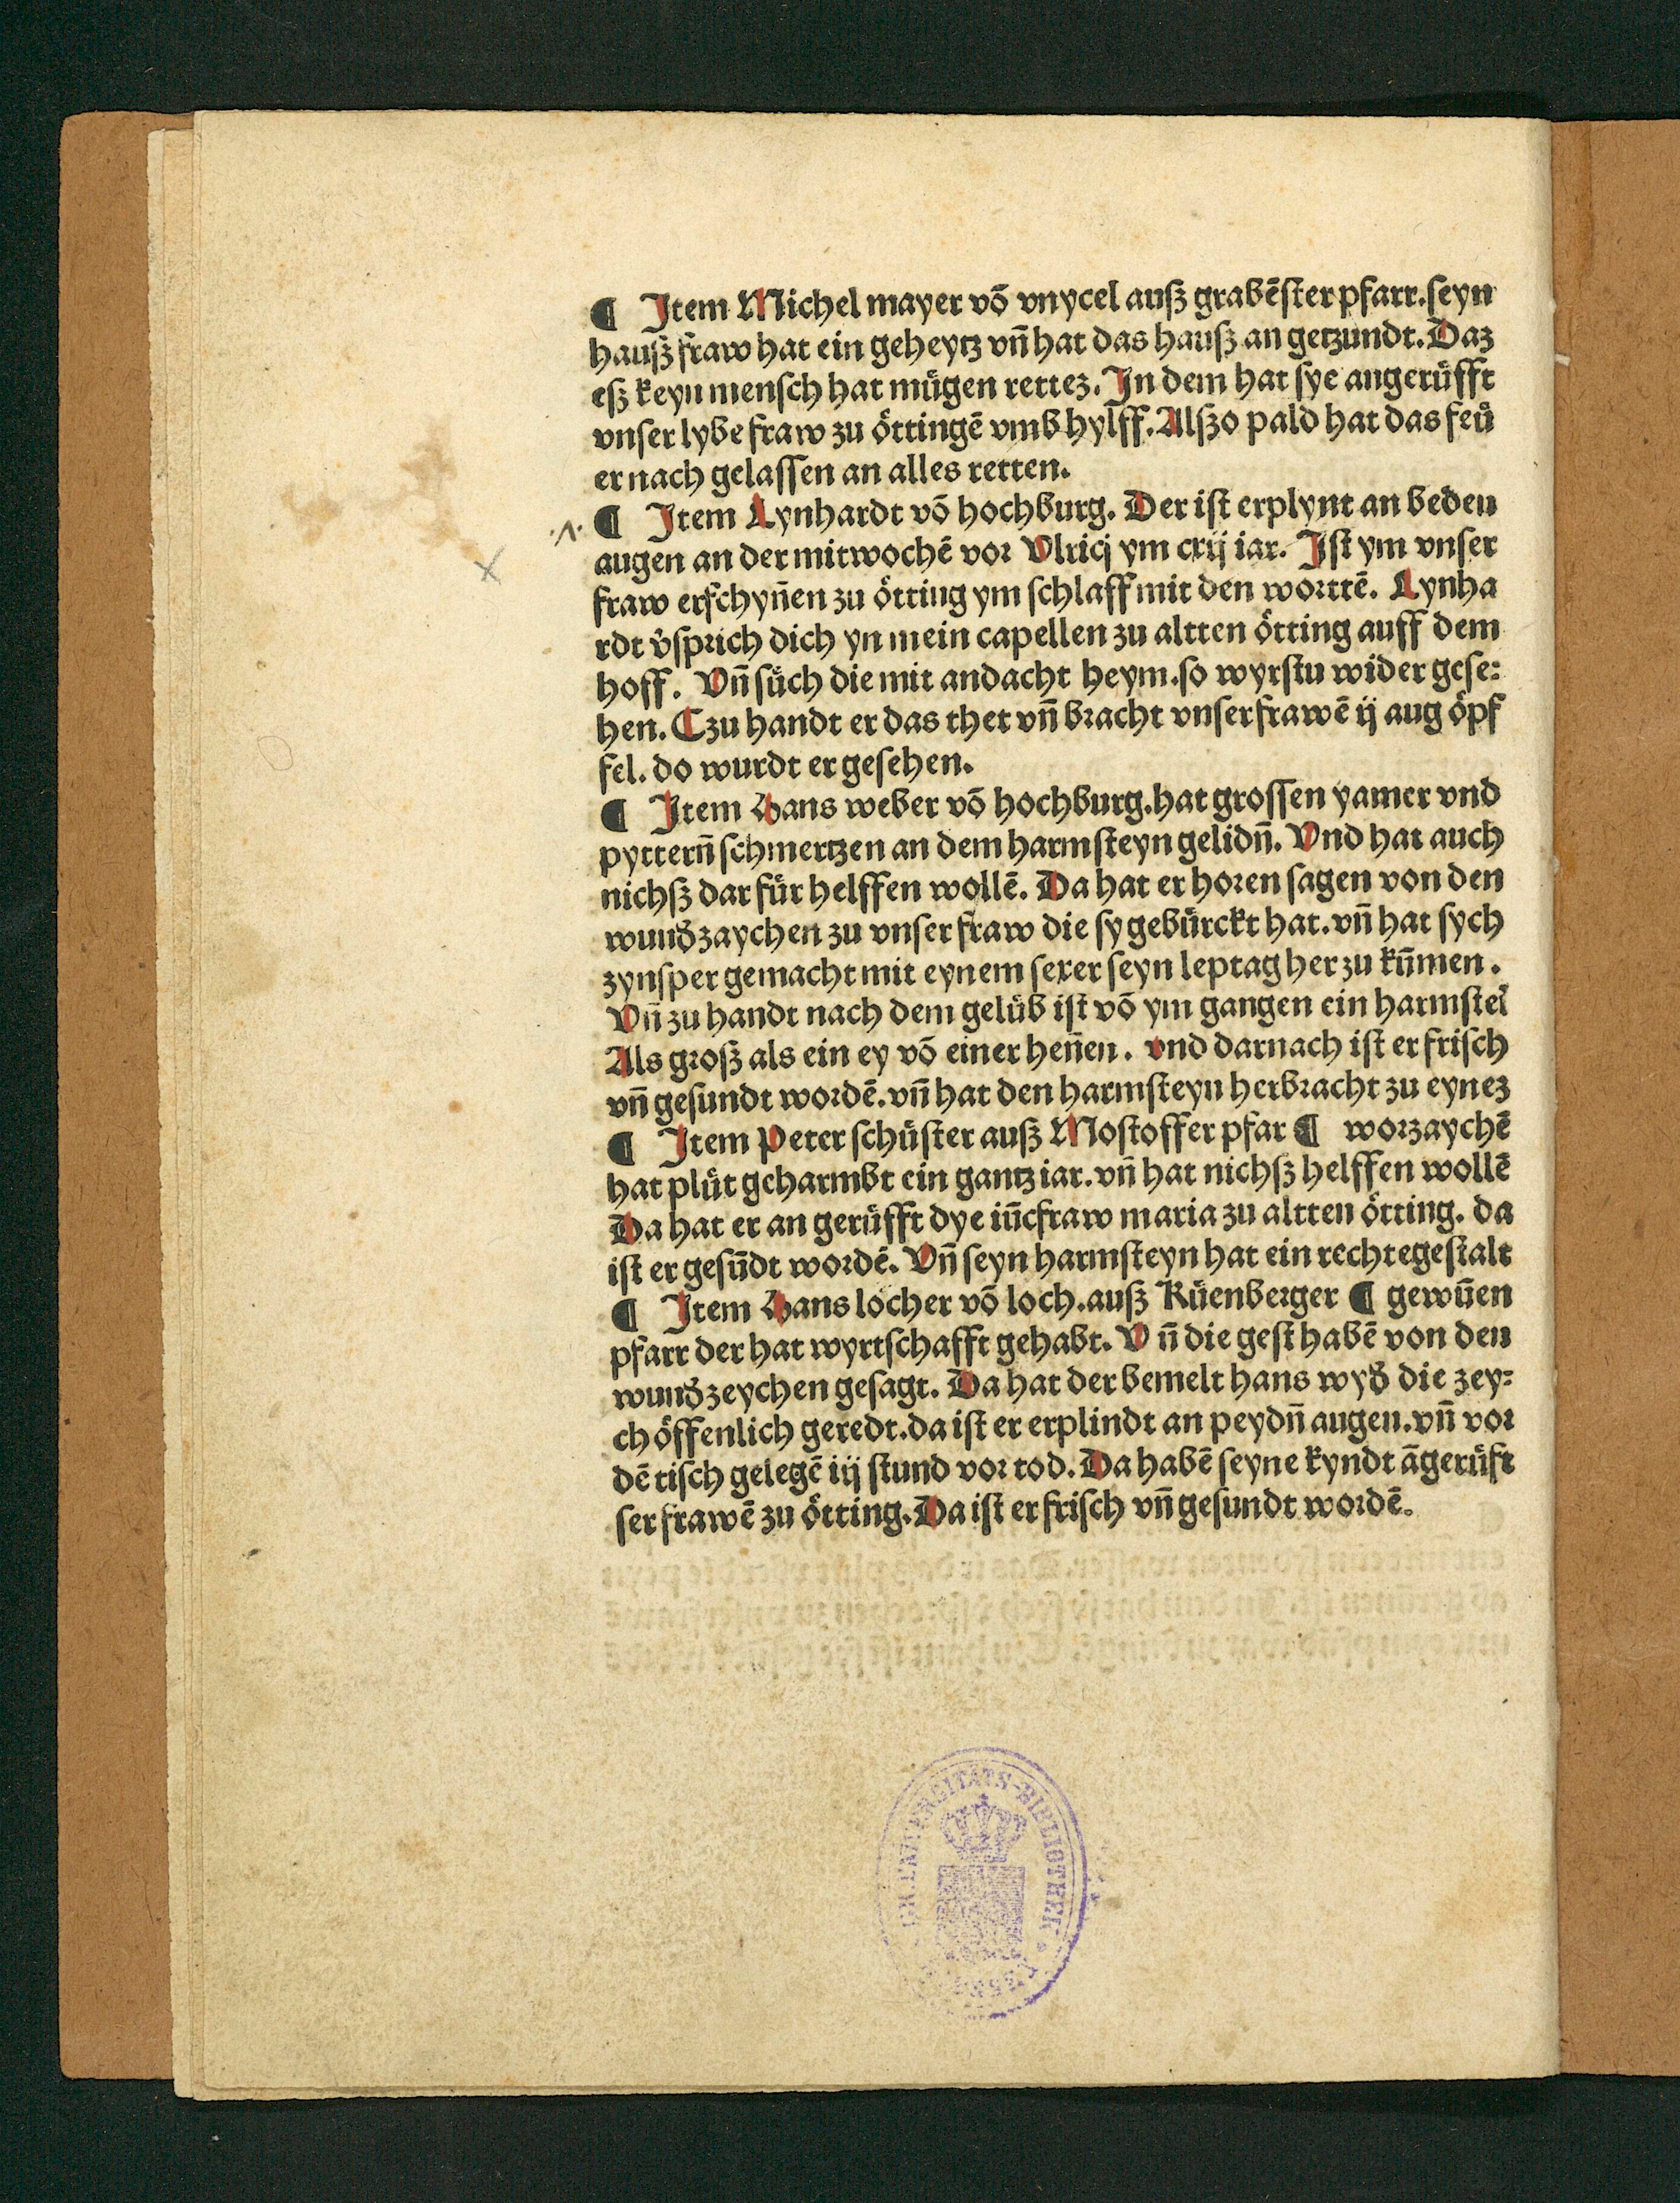 ¶ Item Michel mayer võ vnycel auß grabẽster pfarr. seyn
hauß fraw hat ein geheytz vñ hat das hauß an getzundt. Daz
eß keyn mensch hat mügen rettez. In dem hat sye angerüfft
vnser lybe fraw zu öttingẽ vmb hylff. Alßo pald hat das feü
er nach gelassen an alles retten.
¶ Item Lynhardt võ hochburg. Der ist erplynt an beden
augen an der mitwochẽ vor Vlricj ym crij iar. Ist ym vnser
fraw erschyñen zu ötting ym schlaff mit den worttẽ. Lynha
rdt v̓sprich dich yn mein capellen zu altten ötting auff dem
hoff. Vñ süch die mit andacht heym. so wyrstu wider gese⸗
hen. Czu handt er das thet vñ bracht vnser frawẽ ij aug öpf
fel. do wurdt er gesehen.
¶ Item Hans weber võ hochburg. hat grossen yamer vnd
pytterñ schmertzen an dem harmsteyn gelidñ. Vnd hat auch
nichß dar für helffen wollẽ. Da hat er horen sagen von den
wund̓zaychen zu vnser fraw die sy gebürckt hat. vñ hat sych
zynsper gemacht mit eynem sexer seyn leptag her zu kũmen.
Vñ zu handt nach dem gelüb ist võ ym gangen ein harmstei̇̃
Als groß als ein ey võ einer heñen. vnd darnach ist er frisch
vñ gesundt wordẽ. vñ hat den harmsteyn herbracht zu eynez
¶ Item Peter schüster auß Mostoffer pfar ¶ worzaychẽ
hat plüt geharmbt ein gantz iar. vñ hat nichß helffen wollẽ
Da hat er an gerüfft dye iũcfraw maria zu altten ötting. da
ist er gesũdt wordẽ. Vñ seyn harmsteyn hat ein rechte gestalt
¶ Item Hans locher võ loch. auß Rüenberger ¶ gewũen
pfarr der hat wyrtschafft gehabt. Vñ die gest habẽ von den
wund̓zeychen gesagt. Da hat der bemelt hans wyd̓ die zey⸗
ch öffenlich geredt. da ist er erplindt an peydñ augen. vñ vor
dẽ tisch gelegẽ iij stund vor tod. Da habẽ seyne kyndt ãgerüft
ser frawẽ zu ötting. Da ist er frisch vñ gesundt wordẽ.
UNIVERSITÄTS-BIBLIOTHEK